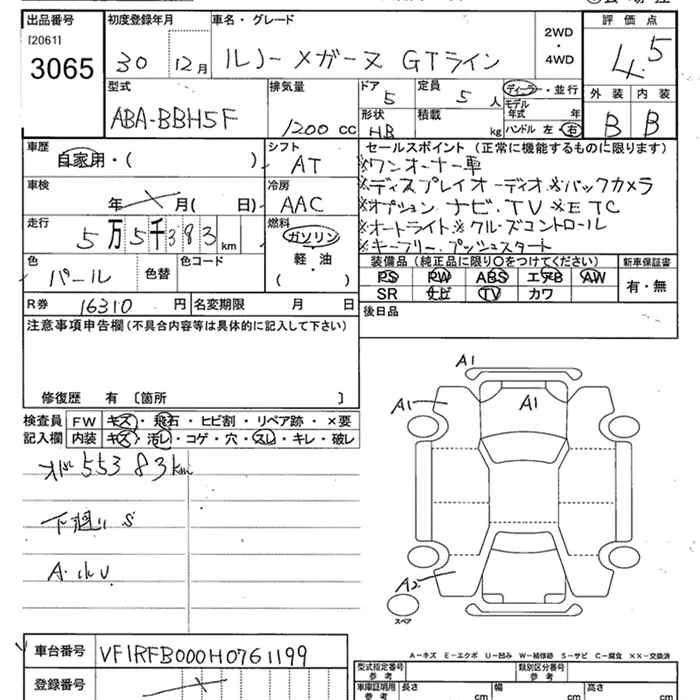 出品番号 初度登録年月 車名・グレード 2WD・4WD 評価点
[2061]
3065 30 12月 ルノー メガーヌ GTライン 4.5
型式 排気量 ドア 5 定員 5人 ディーラー・並行 外装 内装
モデル年式 年
ABA-BBH5F 1200cc 形状 HB 積載 kg ハンドル 左・右 B B
車歴 シフト セールスポイント(正常に機能するものに限ります)
自家用・( ) AT ※ワンオーナー車
車検 冷房 ※ディスプレイオーディオ※バックカメラ
年 月( 日) AAC ※オプション ナビ.TV ※ETC
走行 燃料 ※オートライト※クルーズコントロール
5万5千383km ガソリン ※キーフリー.プッシュスタート
色 色替 色コード 軽・油 装備品(純正品に限り○をつけてください) 新車保証書
パール ( ) PS PW ABS エアB AW 有・無
SR ナビ TV カワ
R券 16310円 名変期限 月 日 後日品
注意事項申告欄(不具合内容等は具体的に記入して下さい)
修復歴 有 〔箇所 〕
検査員 FW キズ・飛石・ヒビ割・リペア跡・×要
記入欄 内装 キズ・汚レ・コゲ・穴・スレ・キレ・破レ
55383km
下廻り S
A1
A1
A1
A2
スペア
A-キズ E-エクボ U-凹み W-補修跡 S-サビ C-腐食 ××-交換済
車台番号 VF1RFB000H0761199
登録番号
型式指定番号 類別区分番号
車庫証明用参考 長さ cm 幅 cm 高さ cm